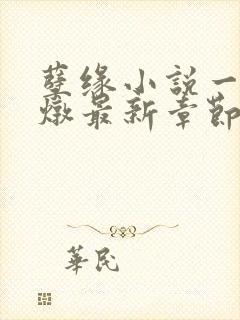 孽缘小説一
燉最新章節
華民